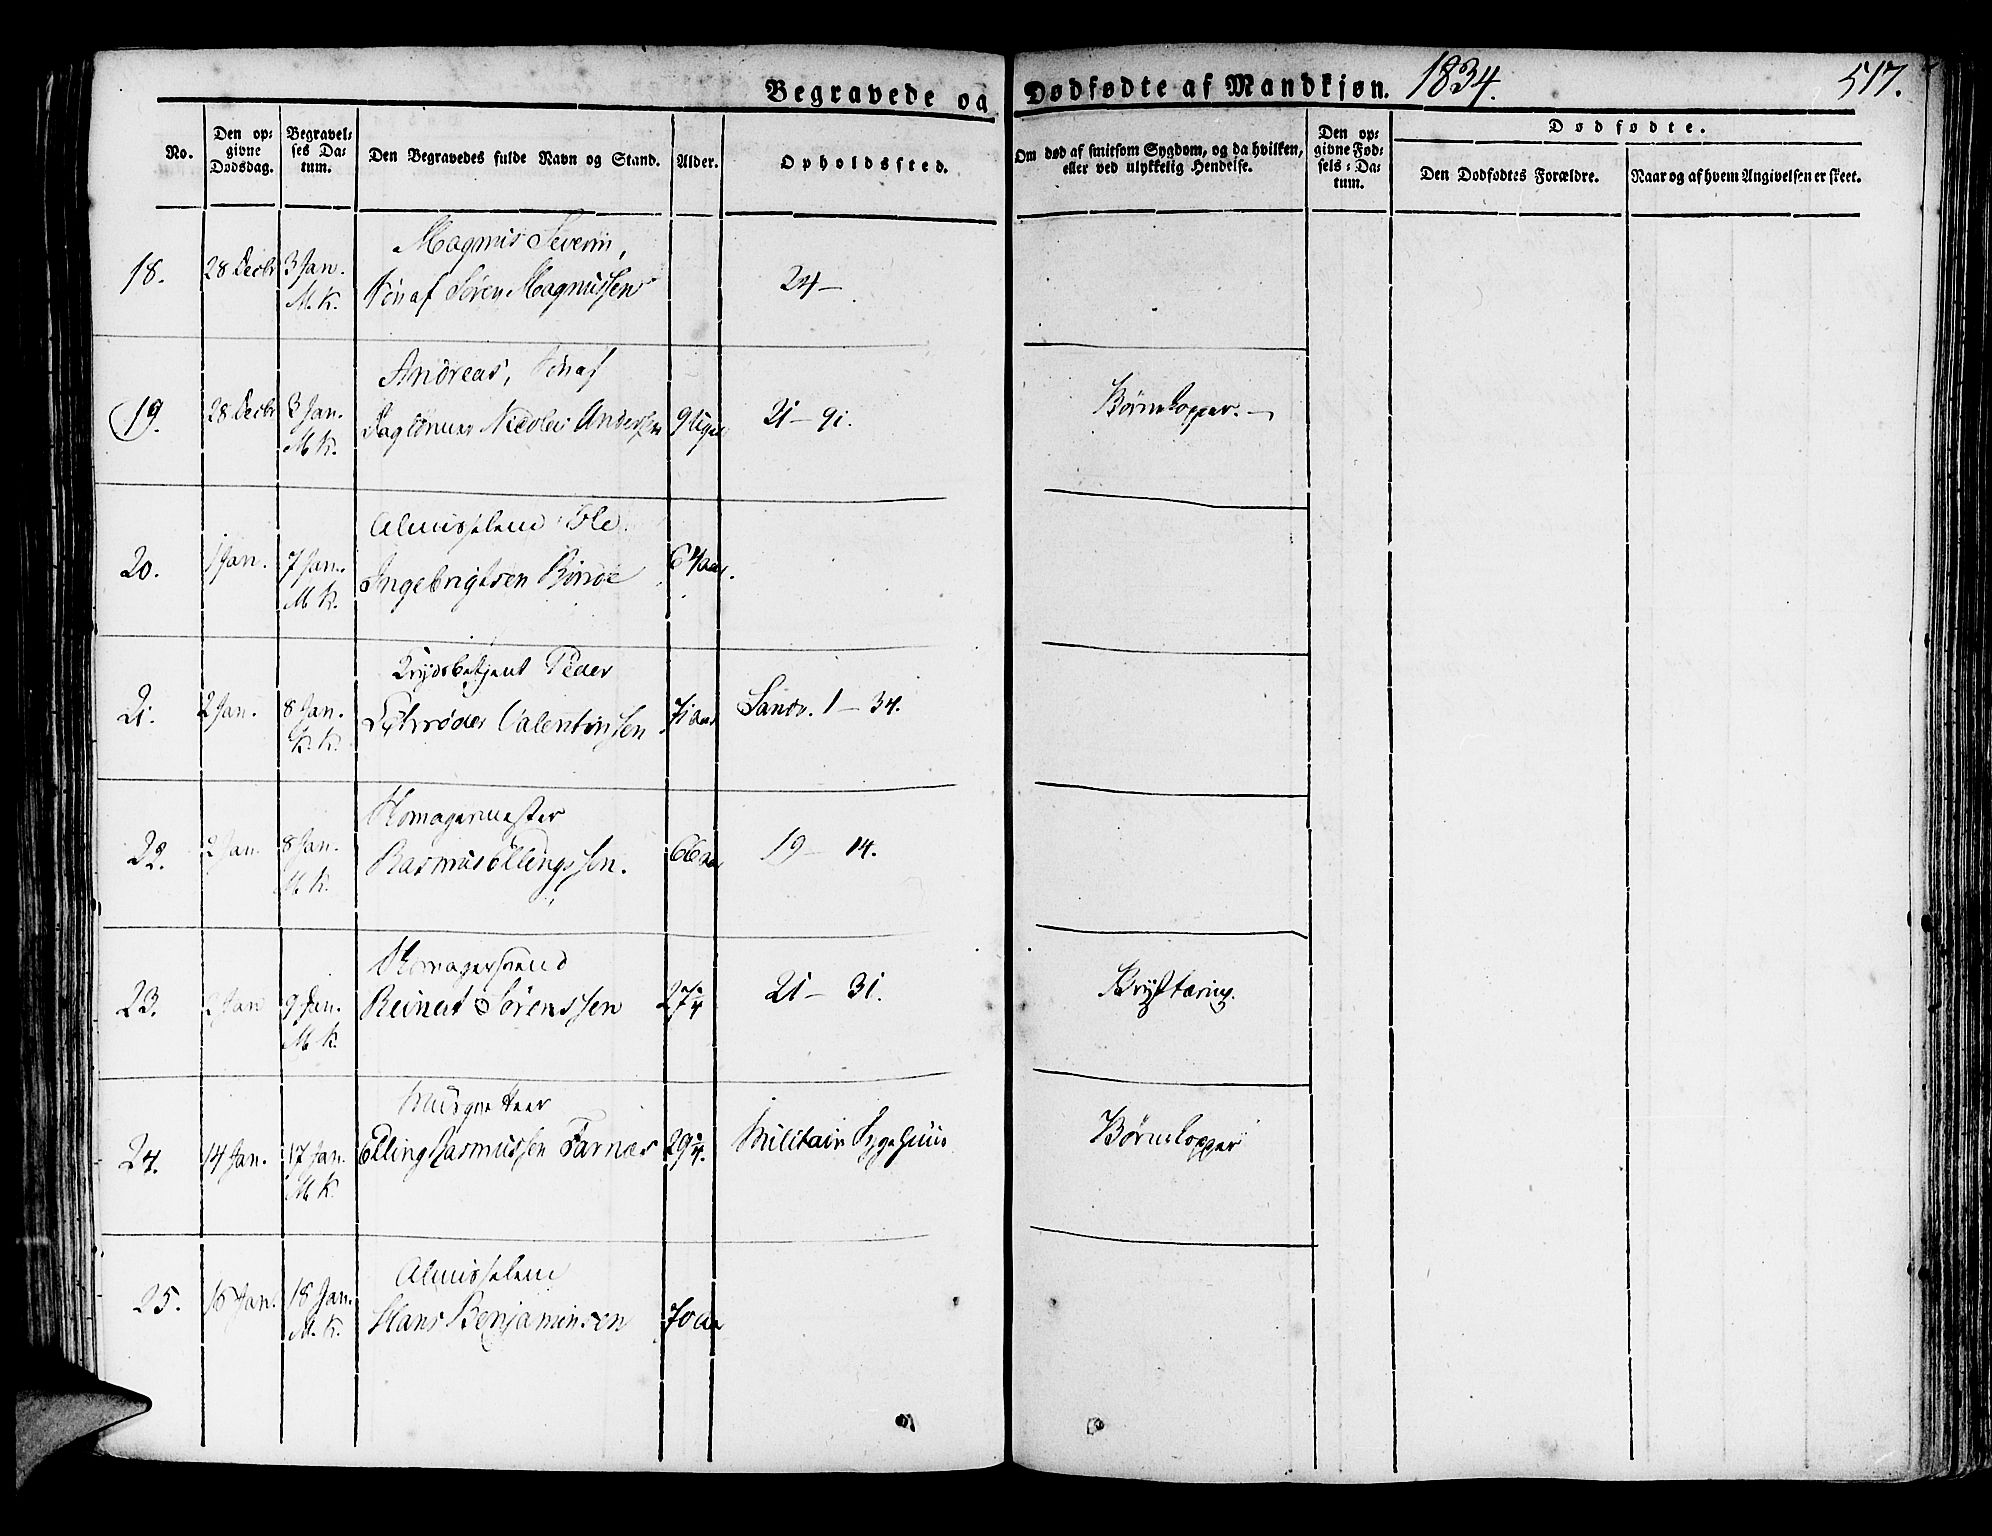 Begravede og Dødfødte af Mandkjøn. 1834. 517.
No. | Den opgivne Dødsdag. | Begravelses Datum. | Den Begravedes fulde Navn og Stand. | Alder. | Opholdssted. | Om død af smitsom Sygdom, og da hvilken, eller ved ulykkelig Hendelse. | Den opgivne Fødsels-Datum. | Dødfødte. | Den Dødfødtes Forældre. | Naar og af hvem Angivelsen er skeet.
Magnus Severin,
18. 28 Decbr 3 Jan. Søn af Sören Magnussen 24 –
M. K.
Andreas, Søn af
19. 28 Decbr 3 Jan. Nicolai Andersen 9 Uger 21 – 91. Börnekopper. –
M K.
Almisselem Ole
20. 1 Jan. 7 Jan. Ingebrigtsen 64 aar.
M K.
Peder
21. 2 Jan. 8 Jan. Schrøder Valentinsen 71 aar Sandv. 1 – 34.
K. K.
Komagermester
22. 2 Jan 8 Jan. Rasmus Ellingssen. 66 aar 19 – 14.
M K.
Komagersvend
23. 2 Jan 9 Jan. Reinert Sörenssen 27 3/4 21 – 31. Brysttæring.
M K.
Musqueteer
24. 14 Jan. 17 Jan. Elling Rasmussen Farnæs 29 3/4. Militair Sygehuus Börnekopper
M K.
Almisselem
25. 16 Jan. 18 Jan. Hans Benjaminsen 70 aar
M. K.